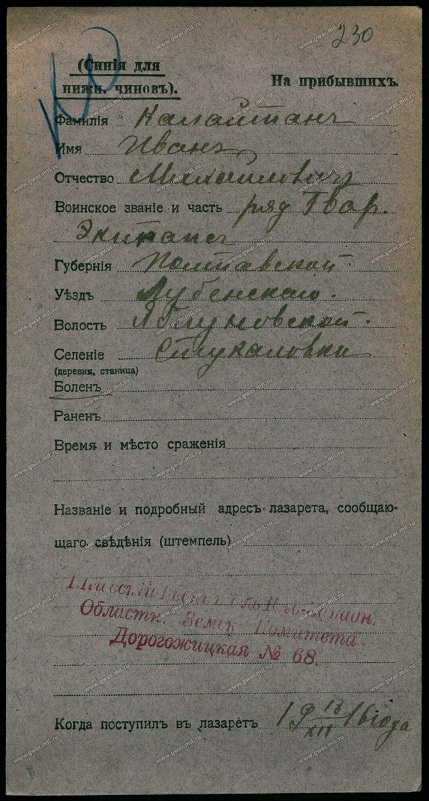 230
(Синія для
нижн. чиновъ).
На прибывшихъ.
Фамилія Калайтанъ
Имя Иванъ
Отчество Михайловичъ
Воинское званіе и часть ряд Гвар.
Экипажъ
Губернія Полтавской
Уѣздъ Лубенскаго.
Волость Яблуновской.
Селеніе Стукаловки
(деревня, станица)
Боленъ
Раненъ
Время и мѣсто сраженія
Названіе и подробный адресъ лазарета, сообщаю-
щаго свѣдѣнія (штемпель)
Областн. Земск Комитета
Дорогожицкая № 68.
Когда поступилъ въ лазаретъ 19 13/XII 16 года